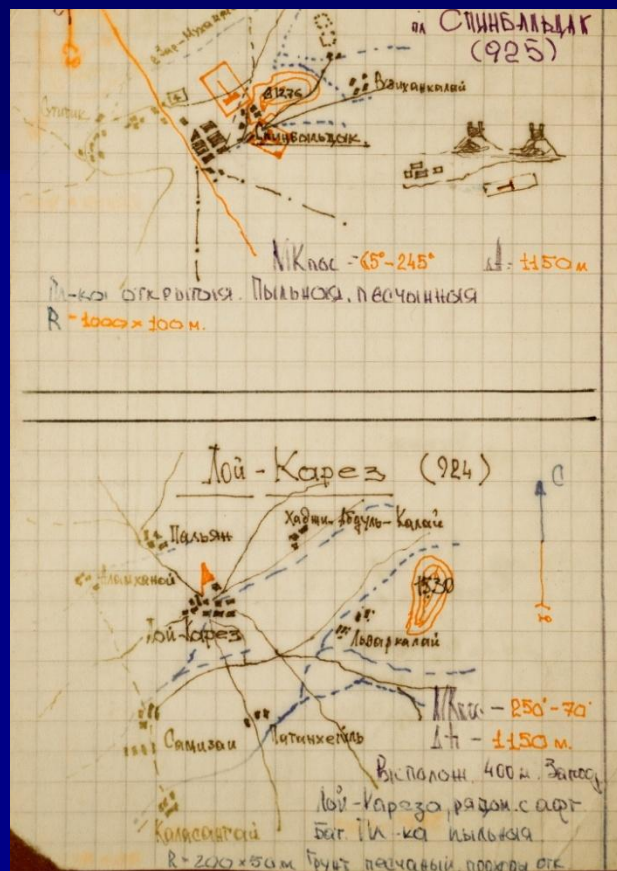 пл СПИНБАЛЬДАК
(925)
Вазиханкалай
1276
Спинбольдак
МКпос - 65°-245° Δh = 1150 м
Пл-ка открытая. Пыльная, песчынная
R - 1000 × 100 м.
Лой-Карез (924)
С
Пальян
Хаджи-Абдуль-Калай
Аламханой
1530
Лой-Карез
Льваркалай
Ю
МКпос - 250°-70°
Δh - 1150 м.
Самизаи Патанхейль
Располож. 400 м. Запад
Лой-Кареза, рядом с арт.
Каласантай
Бат. Пл-ка пыльная
R - 200×50м Грунт песчаный, подходы отк.